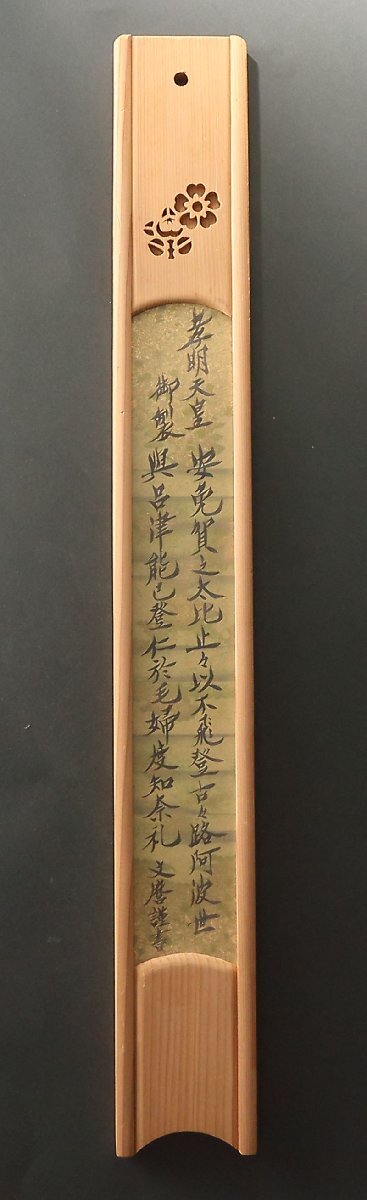 孝明天皇 安免賀之太比止々以不飛登古々路阿波世
御製 與呂津能己登仁於毛婦度知奈礼 文麿謹書